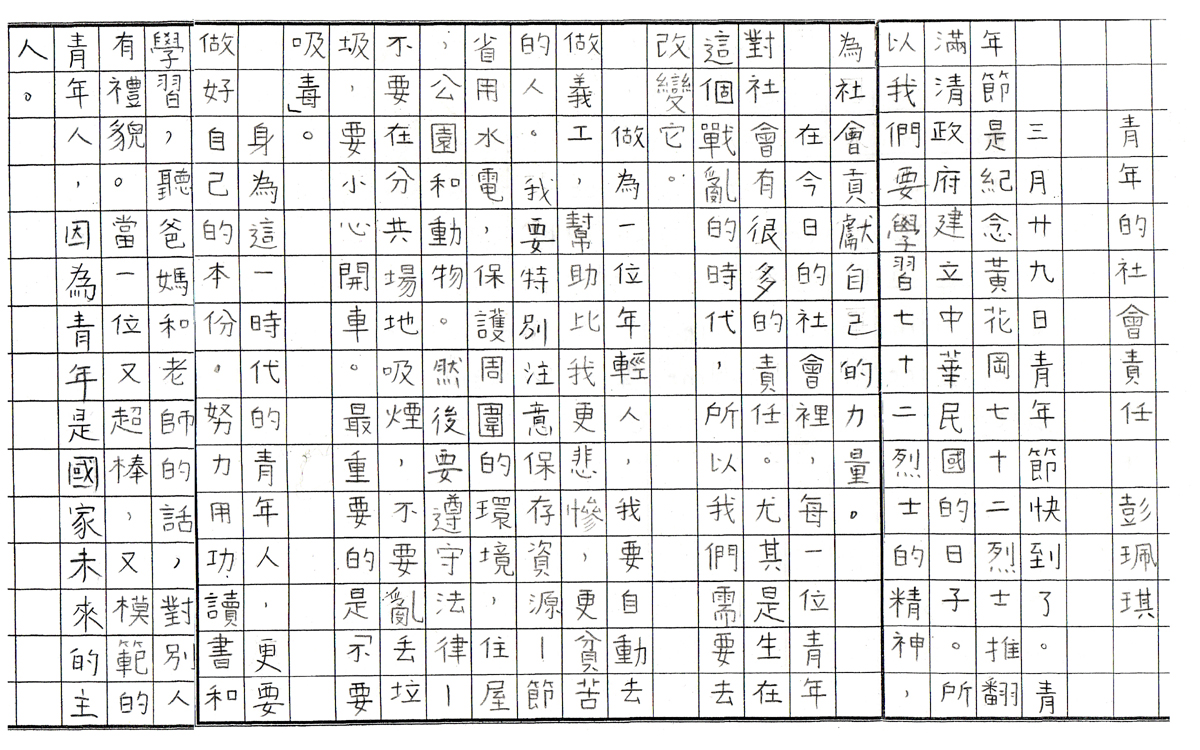 青年的社會責任 彭珮琪
三月廿九日青年節快到了。青
年節是紀念黃花岡七十二烈士推翻
滿清政府建立中華民國的日子。所
以我們要學習七十二烈士的精神，
為社會貢獻自己的力量。
在今日的社會裡，每一位青年
對社會有很多的責任。尤其是生在
這個戰亂的時代，所以我們需要去
改變它。
做為一位年輕人，我要自動去
做義工，幫助比我更悲慘，更貧苦
的人。我要特別注意保存資源｜節
省用水電，保護周圍的環境，住屋
，公園和動物。然後要遵守法律｜
不要在分共場地吸煙，不要亂丟垃
圾，要小心開車。最重要的是「不要
吸毒」。
身為這一時代的青年人，更要
做好自己的本份。努力用功讀書和
學習，聽爸媽和老師的話，對別人
有禮貌。當一位又超棒，又模範的
青年人，因為青年是國家未來的主
人。